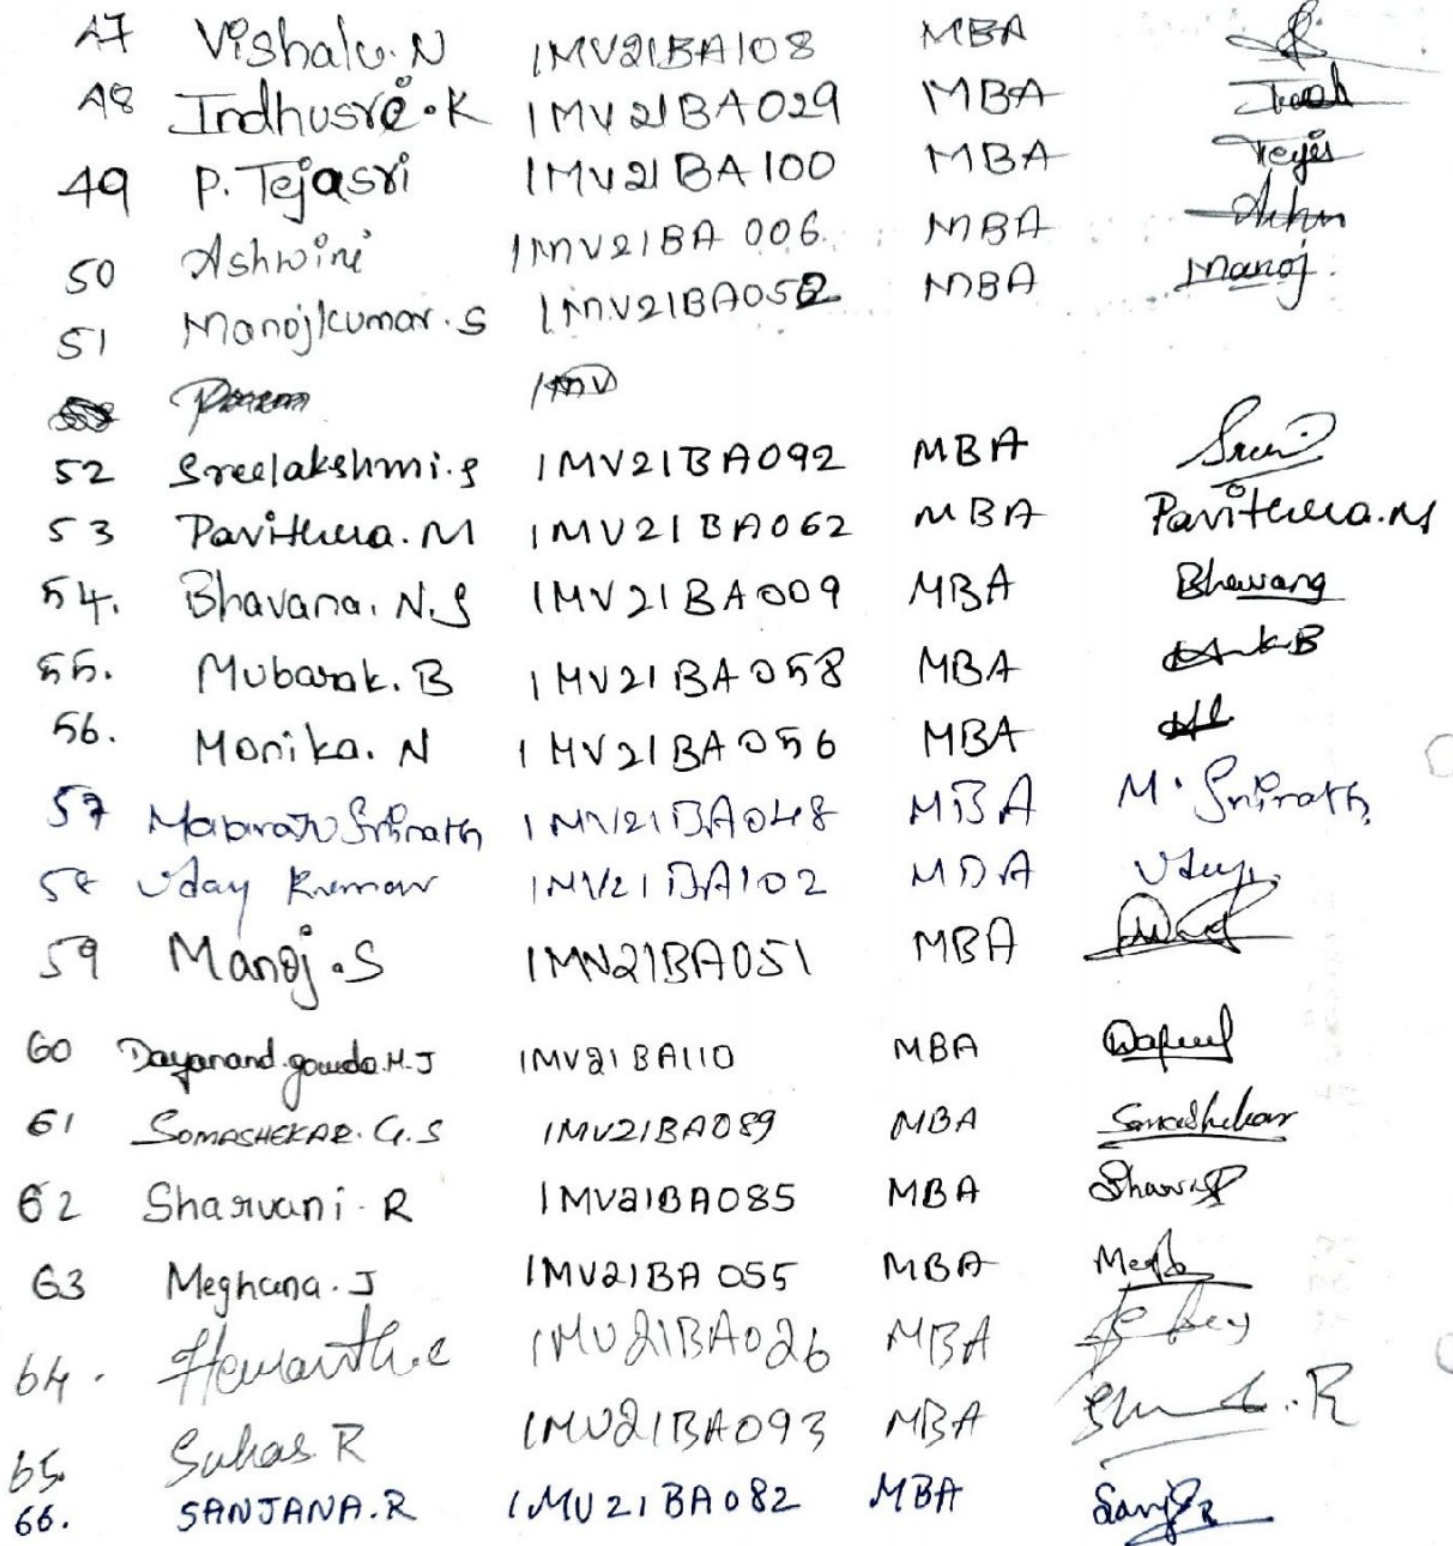 47 Vishalu.N 1MV21BA108 MBA
48 Indhusre.K 1MV21BA029 MBA
49 P. Tejasri 1MV21BA100 MBA Tejas
50 Ashwini 1MV21BA 006 MBA
51 Manojkumar.S 1MV21BA052 MBA Manoj.
1MV
52 Sreelakshmi.S 1MV21BA092 MBA
53 Pavithra.M 1MV21BA062 MBA Pavithra.M
54. Bhavana.N.S 1MV21BA009 MBA Bhavana
55. Mubarak.B 1MV21BA058 MBA
56. Monika.N 1MV21BA056 MBA
57 Srinath 1MV21BA048 MBA M. Srinath
58 Uday Kumar 1MV21BA102 MBA Uday
59 Manoj.S 1MV21BA051 MBA
60 Dayanand.gowda.H.J 1MV21BA110 MBA
61 SOMASHEKAR.G.S 1MV21BA089 MBA Somashekar
62 Sharvani.R 1MV21BA085 MBA
63 Meghana.J 1MV21BA055 MBA
64. Hemanth.c 1MV21BA026 MBA
65. Suhas R 1MV21BA093 MBA
66. SANJANA.R 1MV21BA082 MBA